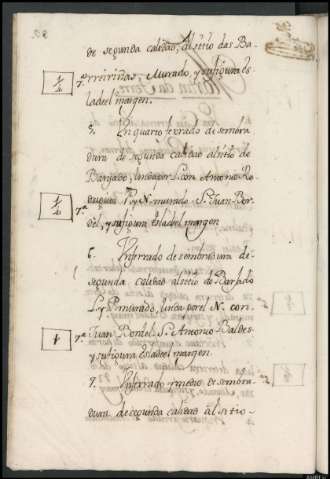 de segunda calidad, al sitio das Ba-
rreiriñas, Murado, y su figura es
la del margen.
5. Un quarto ferado de sembra
dura de segunda calidad al sitio de
por Con Antonio Ro-
P. y N. murado S. Juan Bor-
del, y su figura es la del margen
6. Un ferrado de sembradura de
segunda calidad al sitio de
L. y P. murado, linda por el N. con
Juan Bordel S. Antonio Baldes
y su figura es la del margen.
7. Un ferrado y medio de sembra
dura de segunda calidad al sitio